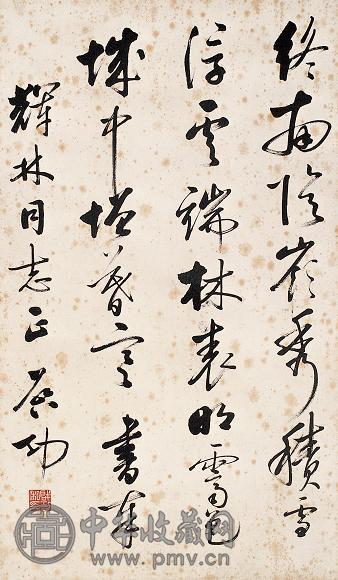 終南陰嶺秀積雪
浮雲端林表明霽色
城中增暮寒 書奉
輝林同志正 启功
中华收藏网
www.pmv.cn